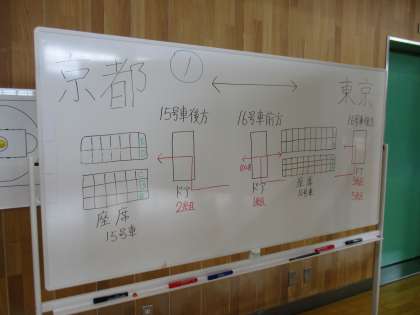 京都
①
東京
15号車後方
16号車前方
16号車後方
ドア
2組
座席
15号車
ドア
1組
座席
16号車
ドア
3組